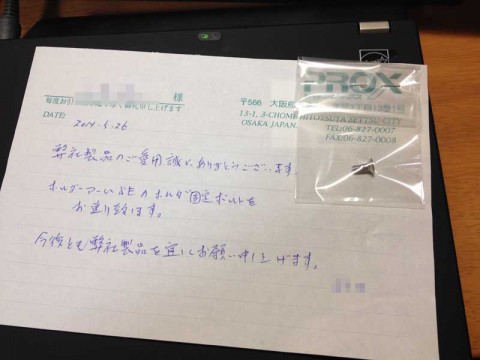 様
毎度お引 御礼申し上げます
〒566 大阪府
DATE: 2014.5.26
13-1, 3-CHOME SETTSU CITY
OSAKA JAPAN.
PROX
TEL:06-827-0007
FAX:06-827-0008
弊社製品のご愛用誠にありがとうございます。
ホルダー固定ボルトを
お送り致します。
今後とも弊社製品を宜しくお願い申し上げます。